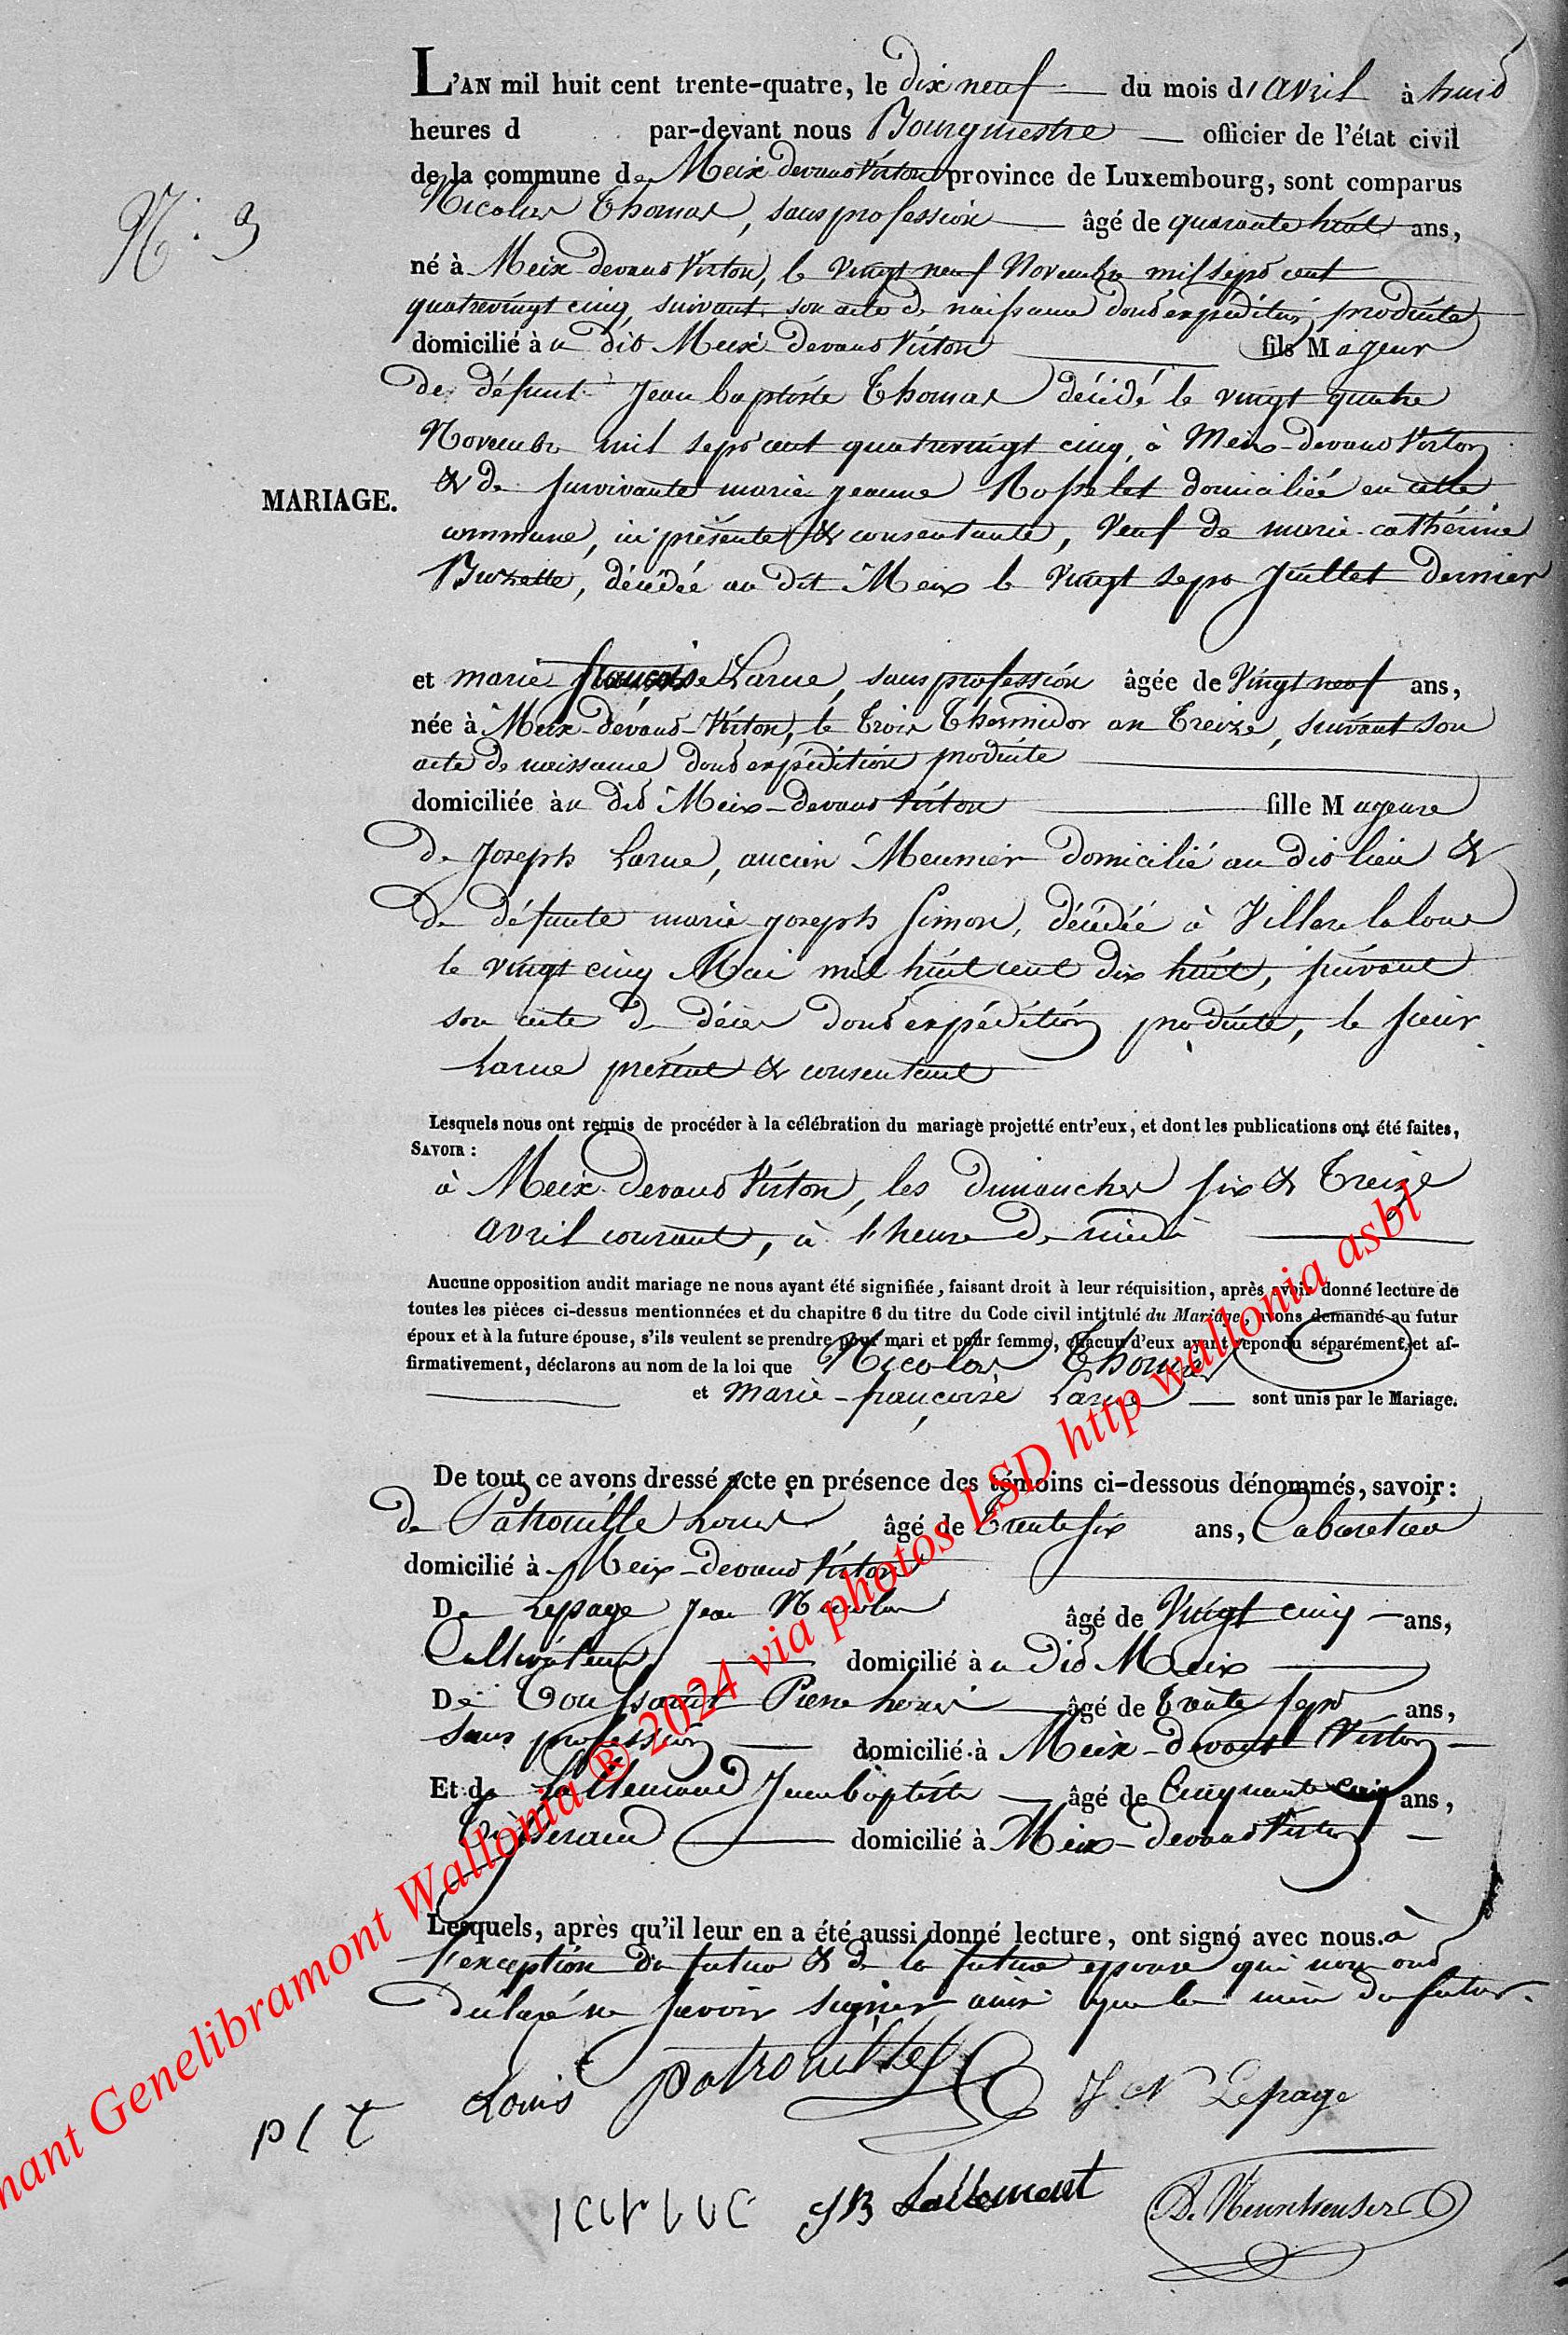 L'AN mil huit cent trente-quatre, le dix neuf du mois d'avril à huit
heures d par-devant nous Bourgmestre officier de l'état civil
de la commune de Meix devant Virton province de Luxembourg, sont comparus
N.° 9
Nicolas Thomas, sans profession âgé de quarante huit ans,
né à Meix devant Virton, le vingt neuf Novembre mil sept cent
quatrevingt cinq, suivant son acte de naissance dont expédition produite
domicilié à u dit Meix devant Virton fils Mageur
de défunt Jean baptiste Thomas décédé le vingt quatre
Novembre mil sept cent quatrevingt cinq, à Meix-devant Virton
MARIAGE.
& de survivante marie jeanne Rosselet domiciliée en cette
commune, ici présente & consentante, Veuf de marie-cathérine
Buzette, décédée au dit Meix le vingt sept Juillet dernier
et marie françoise Larue, sans profession âgée de Vingt neuf ans,
née à Meix-devant-Virton, le trois Thermidor an Treize, suivant son
acte de naissance dont expédition produite
domiciliée à u dit Meix-devant Virton fille Mageure
de Joseph Larue, ancien Meunier domicilié au dit lieu &
de défunte marie joseph Simon, décédée à Villers la loue
le vingt cinq Mai mil huit cent dix huit, suivant
son acte de décès dont expédition produite, le sieur
Larue présent & consentant
Lesquels nous ont requis de procéder à la célébration du mariage projetté entr'eux, et dont les publications ont été faites,
SAVOIR :
à Meix devant Virton, les dimanches six & Treize
avril courant, à l'heure de midi
Aucune opposition audit mariage ne nous ayant été signifiée, faisant droit à leur réquisition, après avoir donné lecture de
toutes les pièces ci-dessus mentionnées et du chapitre 6 du titre du Code civil intitulé du Mariage, avons demandé au futur
époux et à la future épouse, s'ils veulent se prendre pour mari et pour femme, chacun d'eux ayant répondu séparément, et af-
firmativement, déclarons au nom de la loi que Nicolas Thomas
et marie-françoise Larue sont unis par le Mariage.
De tout ce avons dressé acte en présence des témoins ci-dessous dénommés, savoir :
de Patrouille Louis âgé de Trente six ans, Cabaretier
domicilié à Meix-devant Virton
De Lepage Jean Nicolas âgé de Vingt cinq ans,
Cultivateur domicilié à u dit Meix
De Toussaint Pierre Louis âgé de Trente sept ans,
sans profession domicilié à Meix-devant Virton
Et de Lallemand Jean baptiste âgé de Cinquante cinq ans,
Tisserand domicilié à Meix-devant Virton
Lesquels, après qu'il leur en a été aussi donné lecture, ont signé avec nous. à
l'exception du futur & de la future epouse qui nous ont
déclaré ne savoir signer ainsi que la mère du futur.
Louis patrouille J N Lepage
P L T
JB Lallement
nant Genelibramont Wallonia ® 2024 via photos LSD http wallonia asbl